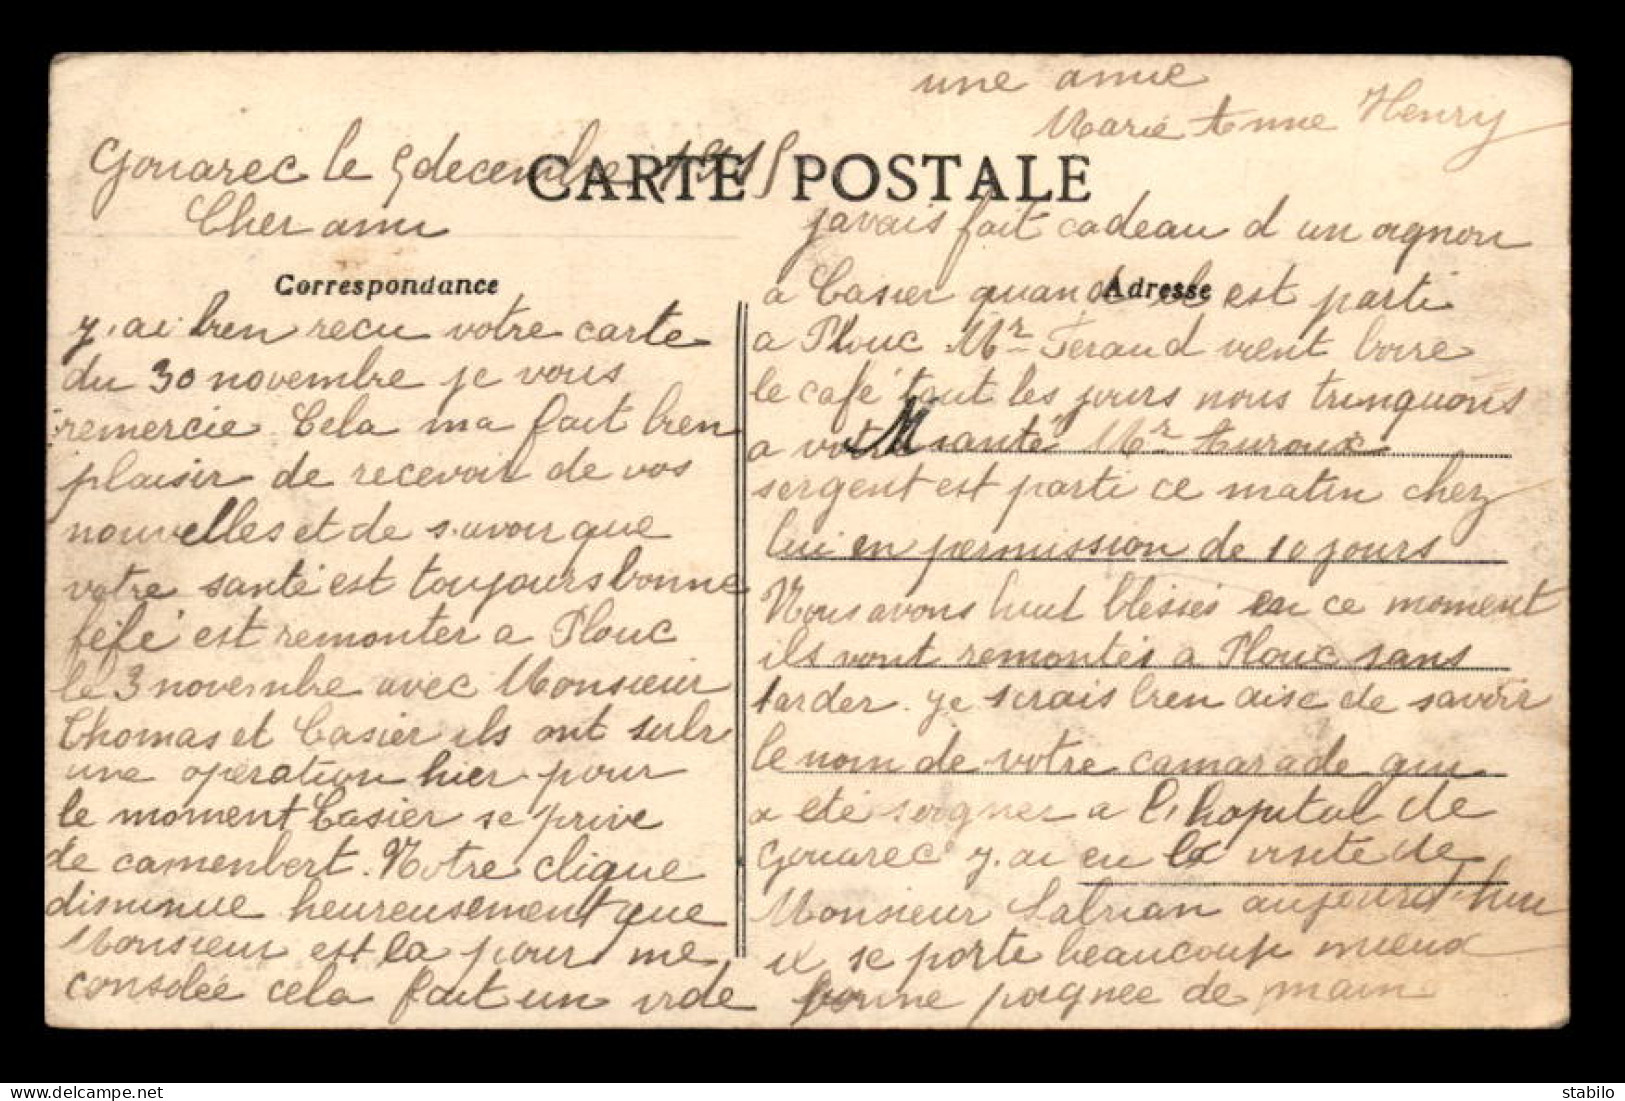 une amie
Marie Anne Henry
CARTE POSTALE
Gouarec le 5 decembre 1915
Cher ami
Correspondance
y. ai bien recu votre carte
du 30 novembre je vous
remercie. Cela ma fait bien
plaisir de recevoir de vos
nouvelles et de savoir que
votre santé est toujours bonne
féfé est remonter a Plouc
le 3 novembre avec Monsieur
Thomas et Casier ils ont subi
une operation hier. pour
le moment Casier se prive
de camenbert. Notre clique
disminue heureusement que
Monsieur est la pour me
consolée cela fait un vide
javais fait cadeau d un ognon
a Casier quand il est parti
Adresse
a Plouc Mr Feraud vient boire
le café tout les jours nous trinquons
a votre santé Mr Auroux
sergent est parti ce matin chez
lui en permission de 10 jours
Nous avons huit blésses en ce moment
ils vont remontés a Plouc sans
tarder. je serais bien aise de savoir
le nom de votre camarade qui
a été soigner a l, hopital de
Gouarec y. ai eu la visite de
Monsieur Labrian aujourd'hui
il se porte beaucoup mieux
bonne poignee de main
stabilo